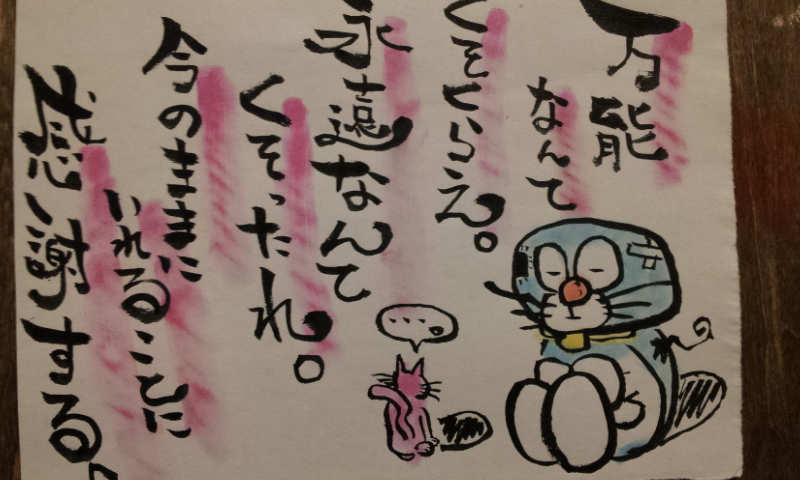 万能
なんて
くそくらえ。
永遠なんて
くそったれ。
今のままに
いれることに
感謝する。
...。